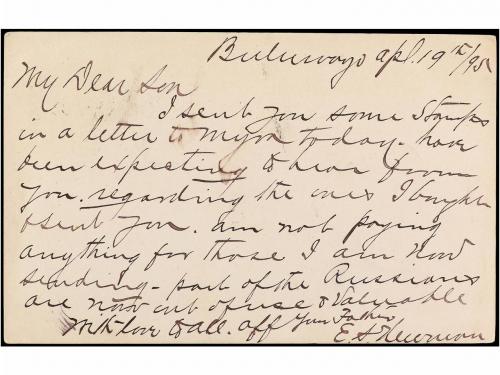 Buluwayo Apl. 19th/95
My Dear Son
I sent you some Stamps
in a letter to Myra today - have
been expecting to hear from
you. regarding the ones I bought
& sent you. am not paying
anything for those I am now
sending - part of the Russians
are now out of use & Valuable
With love to all. Aff Your Father
E. S. Newman